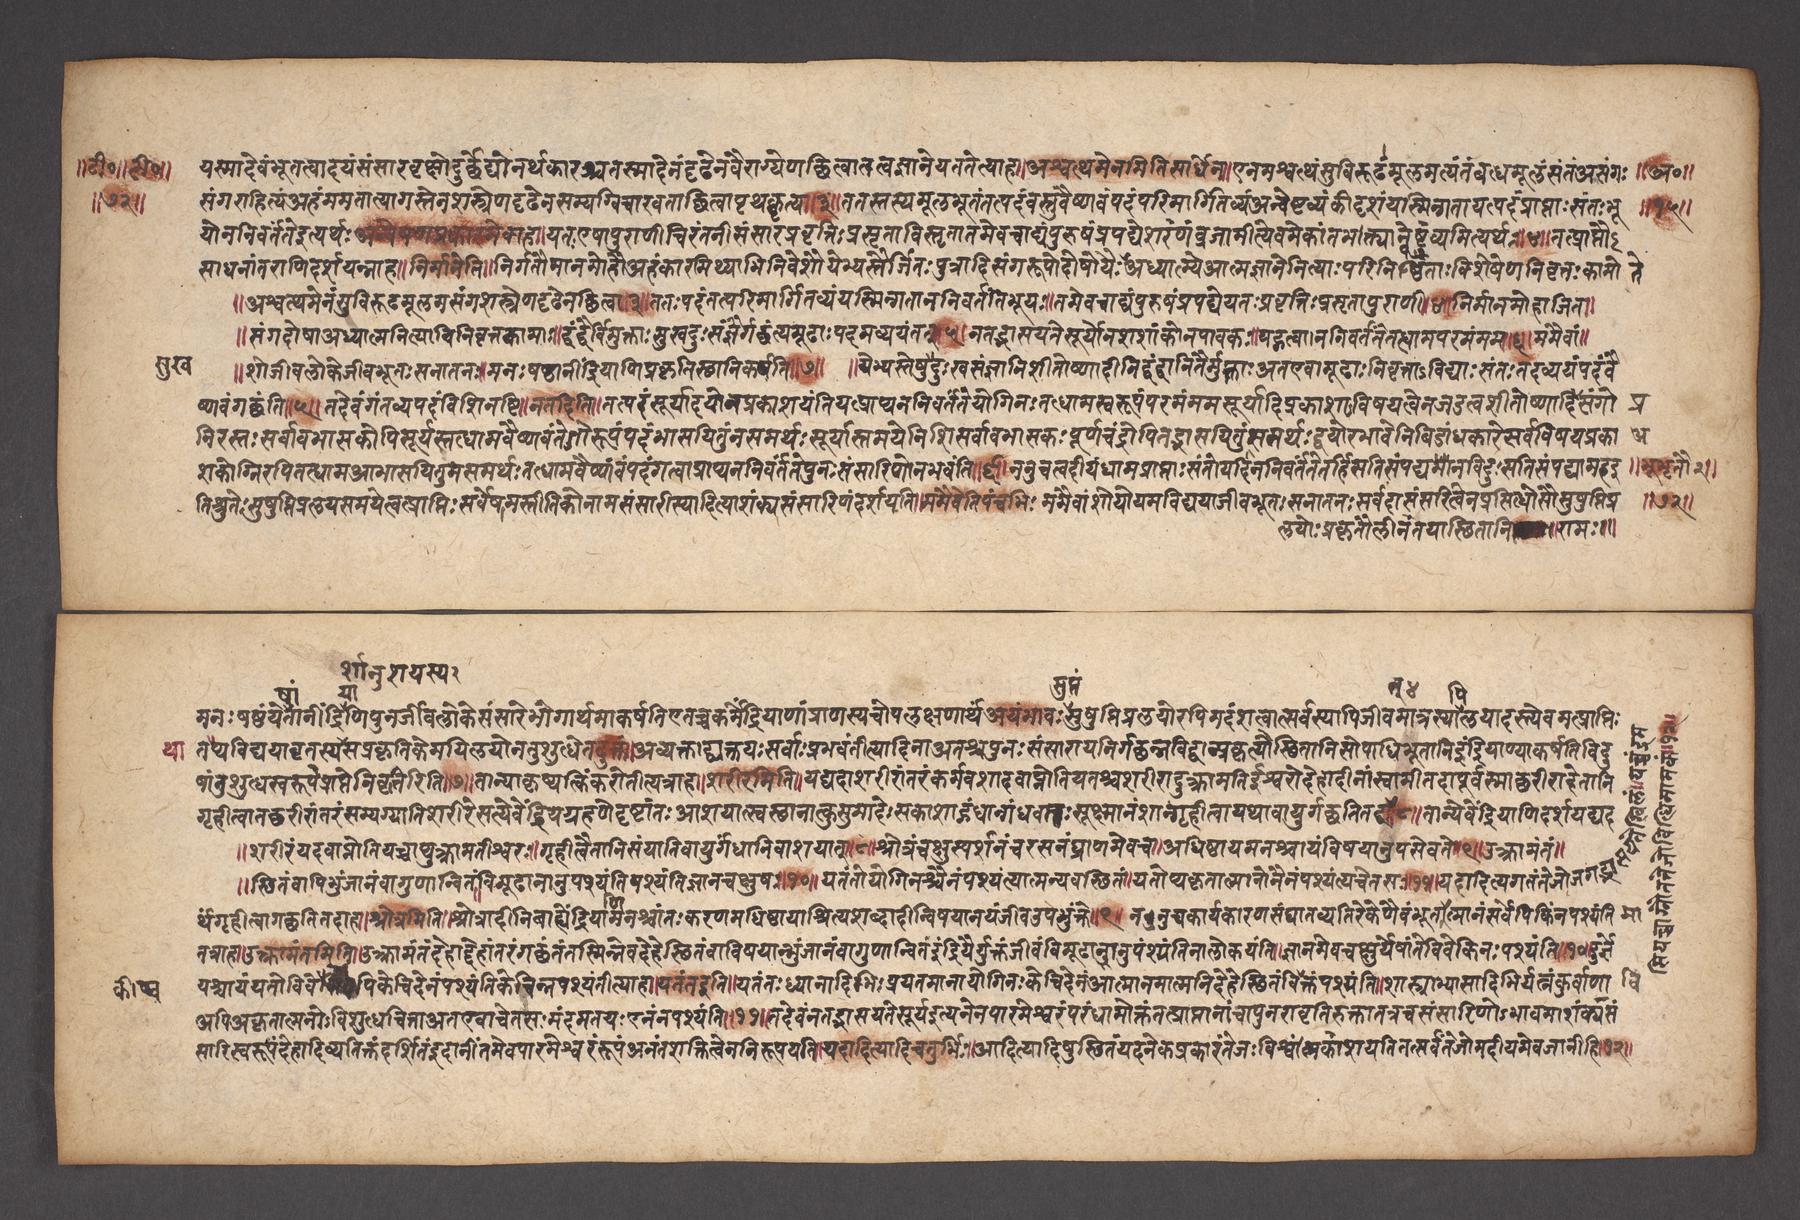 ॥टी०॥श्री०॥
॥७२॥
यस्मादेवंभूतत्वादयंसंसारवृक्षोदुर्छेद्योनर्थकारश्चतस्मादेनंदृढेनवैराग्येणछित्वातत्वज्ञानेयततेत्याह॥अश्वत्थमेनमितिसार्धेन॥एनमश्वत्थंसुविरूढमूलमत्यंतंबधमूलंसंतंअसंगः
॥अ०॥
॥१५॥
संगराहित्यंअहंममतात्यागस्तेनशस्त्रेणदृढेनसम्यग्विचारवताछित्वापृथक्कृत्वा॥३॥ततस्तस्यमूलभूतंतत्पदंवस्तुवैष्णवंपदंपरिमार्गितव्यंअन्वेष्टव्यंकीदृशंयास्मिन्गतायत्पदंप्राप्ताःसंतःभू
योननिवर्ततेइत्यर्थःअन्वेषणप्रकारमेवाह॥यतःएषापुराणीचिरंतनीसंसारप्रवृत्तिःप्रसृताविस्तृतातमेवचाद्यंपुरुषंप्रपद्येशरणंव्रजामीत्येवमेकांतभक्त्यान्वेष्टव्यमित्यर्थः॥४॥तत्प्राप्तौ
साधनांतराणिदर्शयन्नाह॥निर्मानेति॥निर्गतौमानमोहौअहंकारमिथ्याभिनिवेशौयेभ्यस्तेजितःपुत्रादिसंगरूपोदोषोयैःअध्यात्म्येआत्मज्ञानेनित्याःपरिनिष्ठिताःविशेषेणनिवृतःकामो ते
॥अश्वत्थमेनंसुविरूढमूलमसंगशस्त्रेणदृढेनछित्वा॥३॥ततःपदंतत्परिमार्गितव्यंयस्मिन्गताननिवर्ततिभूयः॥तमेवचाद्यंपुरुषंप्रपद्येयतःप्रवृत्तिःप्रसृतापुराणी॥४॥निर्मानमोहाजिता॥
॥संगदोषाअध्यात्मनित्याविनिवृत्तकामाः॥द्वंद्वैर्विमुक्ताःसुखदुःसंज्ञैर्गछंत्यमूढाःपदमव्ययंतत्॥५॥नतद्भासयतेसूर्योनशशांकोनपावकः॥यद्गत्वाननिवर्ततेतद्धामपरमंमम॥६॥ममैवां॥
सुख
॥शोजीवलोकेजीवभूतःसनातनः॥मनःषष्ठानींद्रियाणिप्रकृतिस्थानिकर्षति॥७॥ ॥येभ्यस्तेषुदुःखसंज्ञानिशीतोष्णादीनिद्वंद्वानितैर्मुक्ताःअतएवामूढाःनिवृत्ताऽविद्याःसंतःतदव्ययंपदंवै
ष्णवंगछंति॥५॥तदेवंगंतव्यपदंविशिनष्टि॥नतदिति॥तत्पदंसूर्यादयोनप्रकाशयंतियत्प्राप्यननिवर्ततेयोगिनःतद्धामस्वरूपंपरमंममसूर्यादिप्रकाशाविषयत्वेनजडत्वशीतोष्णादिसंगो प्र
निरस्तःसर्वावभासकोपिसूर्यस्तद्धामवैष्णवंतेजोरूपंपदंभासयितुंनसमर्थःसूर्यास्तमयेनिशिसर्वावभासकःपूर्णचंद्रोपितद्भासयितुंसमर्थःद्वयोरभावेनिबिडांधकारेसर्वविषयप्रका अ
शकोग्निरपितत्धामआभासयितुमसमर्थःतद्धामवैष्णवंपदंगत्वाप्राप्यननिवर्ततेपुनःसंसारिणोनभवंति॥६॥ननुचत्वदीयंधामप्राप्ताःसंतोयदिननिवर्ततेतर्हिसतिसंपद्यमानविदुःसतिसंपद्यामहइ
तिश्रुतेःसुषुप्तिप्रलयसमयेत्वत्प्राप्तिःसर्वेषामस्तीतिकोनामसंसारीस्यादित्याशंक्यसंसारिणंदर्शयति॥ममैवेतिपंचभिःममैवांशोयोयमविद्ययाजीवभूतःसनातनःसर्वदासंसारित्वेनप्रसिद्धोसौसुषुप्तिप्र
॥७२॥
लयोःप्रकृतौलीनंतयास्थितानि ॥रामः॥
र्शानुशयस्य२
षां या
सुप्तं
न्४ पि
मनःषष्ठंयेतानींद्रियाणिपुनर्जीवलोकेसंसारेभोगार्थमाकर्षतिएतच्चकर्मेंद्रियाणांप्राणस्यचोपलक्षणार्थंअयंभावःसुषुप्तिप्रलयोरपिमदंशत्वात्सर्वस्यापिजीवमात्रस्यलयादस्त्येवमत्प्राप्तिः
था
तथ्यविद्ययावृतस्यसप्रकृतिकेमयिलयोनतुशुद्धेतदुक्तं॥अव्यक्ताद्व्यक्तयःसर्वाःप्रभवंतीत्यादिनाअतश्चपुनःसंसारायनिर्गछन्नविद्वान्प्रकृत्यौस्थितानिसोपाधिभूतानिइंद्रियाण्याकर्षतिविदु
षांतुशुद्धस्वरूपप्राप्तेर्निवृत्तिरिति॥७॥तान्याकृष्यत्किंकरोतीत्यत्राह॥शरीरमिति॥यद्यदाशरीरांतरंकर्मवशादवाप्नोतियतश्चशरीरादुत्क्रामतिईश्वरोदेहादीनांस्वामीतदापूर्वस्माच्छरीराद्देतानि
गृहीत्वातच्छरीरांतरंसम्यग्यातिशरीरेसत्येवेंद्रियग्रहणेदृष्टांतःआशयात्स्वस्थानात्कुसुमादेःसकाशाद्गंधान्गंधवतःसूक्ष्मानंशान्गृहीत्वायथावायुर्गछतितद्वत्॥८॥तान्येवेंद्रियाणिदर्शयद्यद
॥शरीरंयदवाप्नोतियच्चाप्युत्क्रामतीश्वरः॥गृहीत्वैतानिसंयातिवायुर्गंधानिवाशयात्॥८॥श्रोत्रंचक्षुस्पर्शनंचरसनंघ्राणमेवच॥अधिष्ठायमनश्चायंविषयानुपसेवते॥९॥उत्क्रामंतं॥
॥स्थितंवापिभुंजानंवागुणान्वितंविमूढानानुपश्यंतिपश्यंतिज्ञानचक्षुषः॥१०॥यतंतोयोगिनश्चैनंपश्यंत्यात्मन्यवस्थितं॥यतोप्यकृतात्मानोनैनंपश्यंत्यचेतसः॥११॥यदादित्यगतंतेजोजगद्भासयतेखिलं॥यच्चंद्रम
सियच्चाग्नौतत्तेजोविद्धिमामकं॥१२॥
र्थंगृहीत्वागछतितदाह॥श्रोत्रमिति॥श्रोत्रादीनिबाह्येंद्रियाणिमनश्चांतःकरणमधिष्ठायाश्रित्यशब्दादीन्विषयानयंजीवउपभुंक्ते॥९॥ननुचकार्यकारणसंघातव्यतिरेकेणैवंभूतात्मानंसर्वेपिकिंनपश्यंति
तत्राह॥उत्क्रामंतमिति॥उत्क्रामंतंदेहाद्देहांतरंगछंतंतस्मिन्नेवदेहेस्थितंवाविषयान्भुंजानंवागुणान्वितंइंद्रियैर्युक्तंजीवंविमूढानानुपश्यंतिनालोकयंति॥ज्ञानमेवचक्षुर्येषांतेविवेकिनःपश्यंति॥१०॥दुर्ज्ञे
यश्चायंयतोविवेकिष्वपिकेचिदेनंपश्यंतिकेचिन्नपश्यंतीत्याह॥यतंतइति॥यतंतःध्यानादिभिःप्रयतमानायोगिनःकेचिदेनंआत्मानमात्मनिदेहेस्थितंविक्तंपश्यंति॥शास्त्राभ्यासादिभिर्यत्नंकुर्वाणा वि
अपिअकृतात्मनोःविशुधचित्ताअतएवाचेतसःमंदमतयःएनंनपश्यंति॥११॥तदेवंनतद्भासयतेसूर्यइत्यनेनपारमेश्वरंपरंधामोक्तंतत्प्राप्तानांचापुनरावृतिरुक्तातत्रचसंसारिणोऽभावमाशंक्यसं
सारिस्वरूपंदेहादिव्यतिरिक्तंदर्शितंइदानींतमेवपारमेश्वरंरूपंअनंतशक्तित्वेननिरूपयति॥यदादित्यादिचतुर्भिः॥आदित्यादिषुस्थितंयदनेकप्रकारंतेजःविश्वंप्रकाशयतितत्सर्वंतेजोमदीयमेवजानीहि॥१२॥